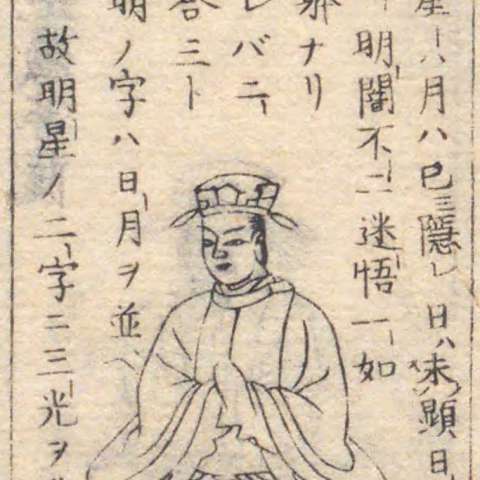 星ハ月ハ已ニ隠レ日ハ未顕日
明闇不二迷悟一如
ナリ
レバニ
答三ト
明ノ字ハ日月ヲ並ヘ
故明星ノ二字ニ三光ヲ